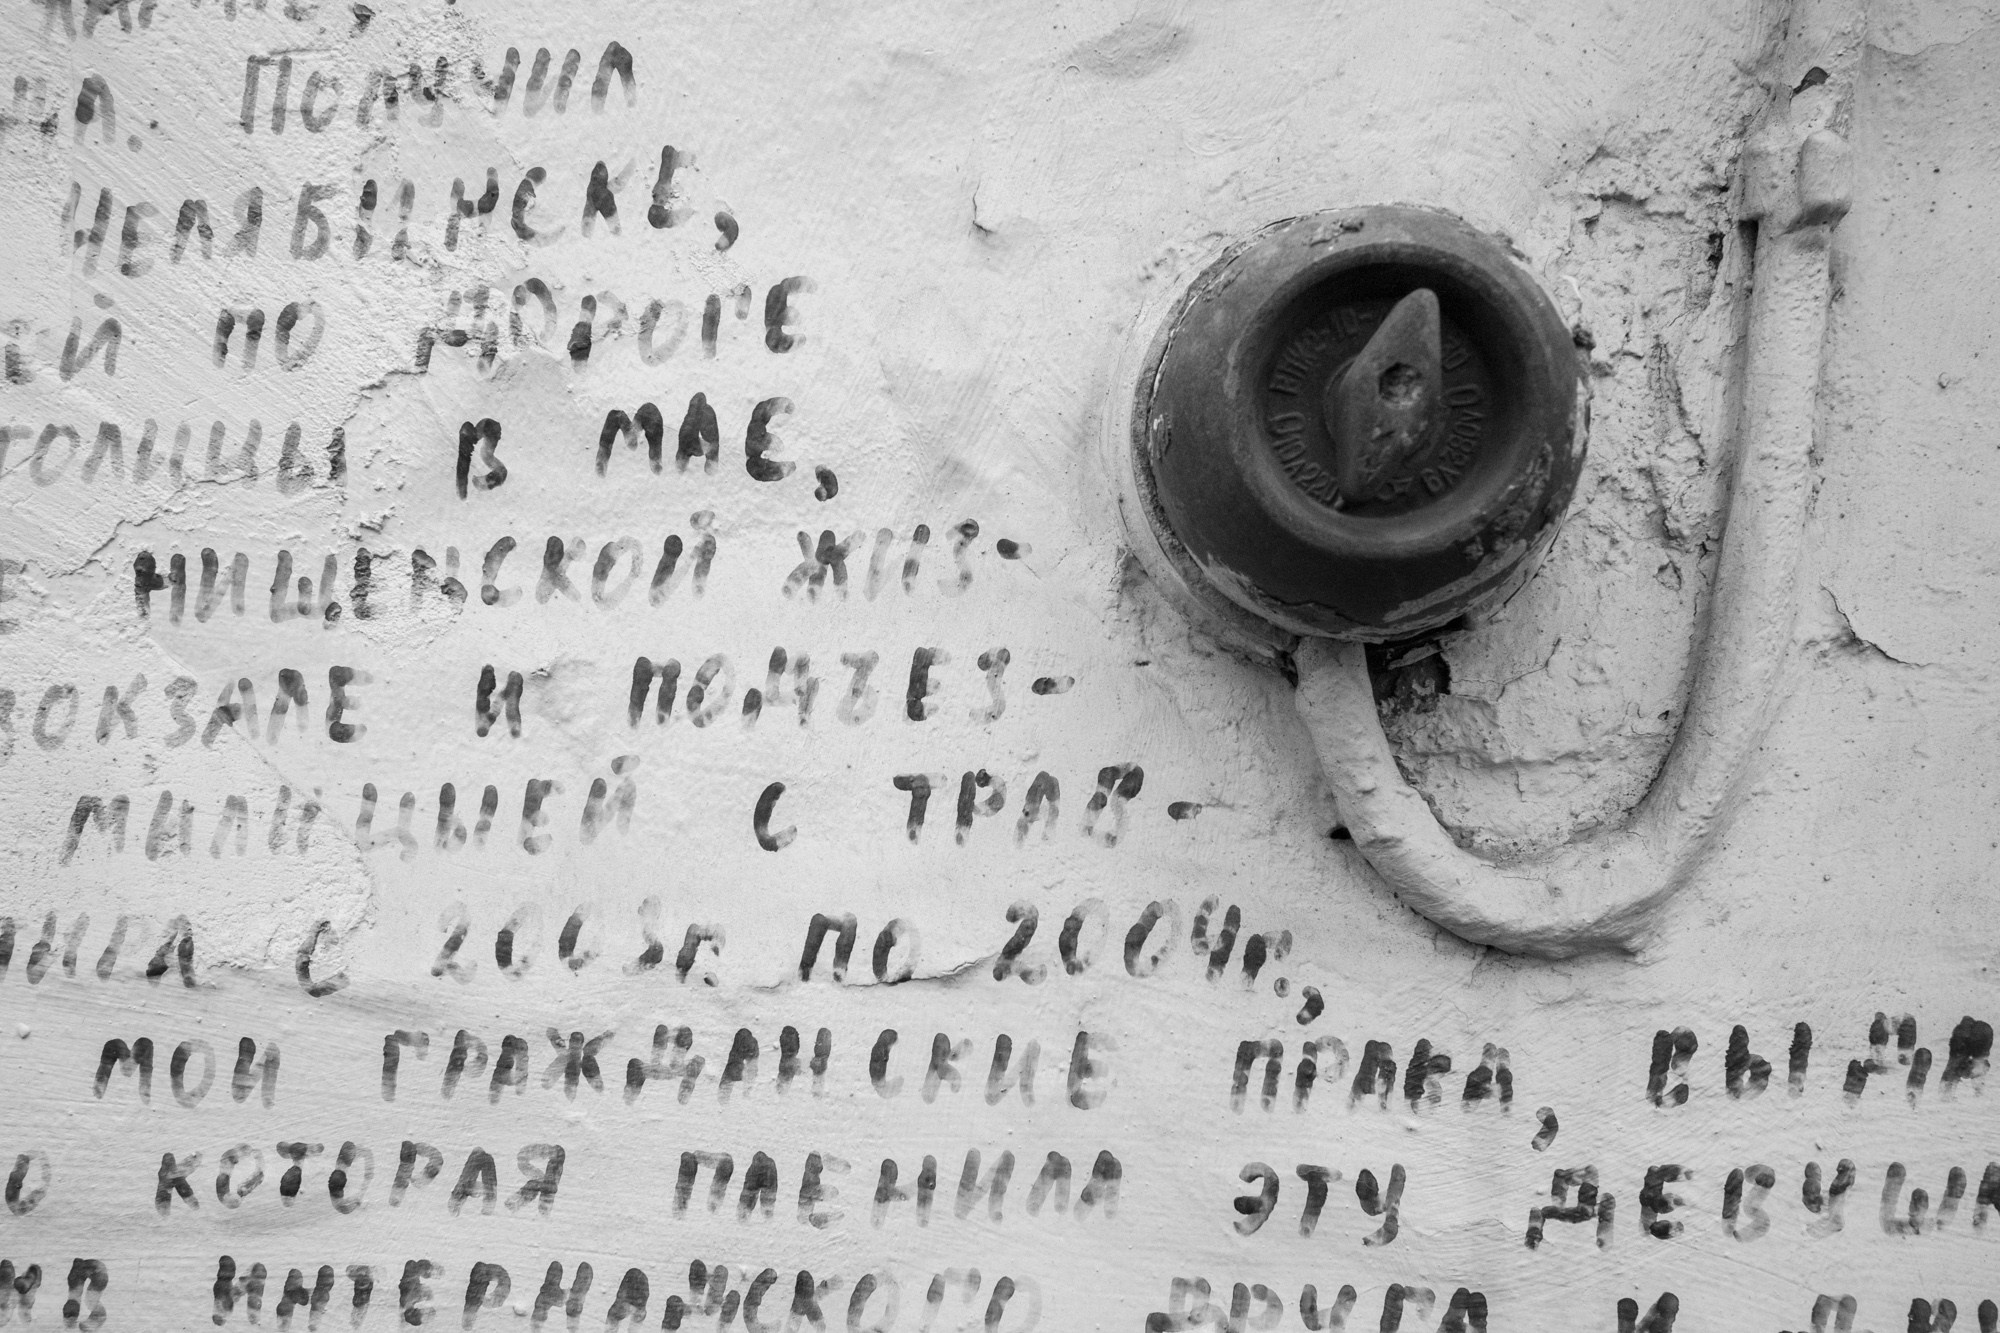 Получил
ЧЕЛЯБИНСКЕ,
ЕЙ ПО ДОРОГЕ
ТОЛИЦЫ В МАЕ,
НИЩЕНСКОЙ ЖИЗ-
ВОКЗАЛЕ И ПОДЪЕЗ-
МИЛИЦЫЕЙ С ТРАВ-
С 2003г. ПО 2004г.,
МОИ ГРАЖДАНСКИЕ ПРАВА, ВЫДА
О КОТОРАЯ ПЛЕНИЛА ЭТУ ДЕВУШК
ИНТЕРНАДСКОГО ДРУГА И